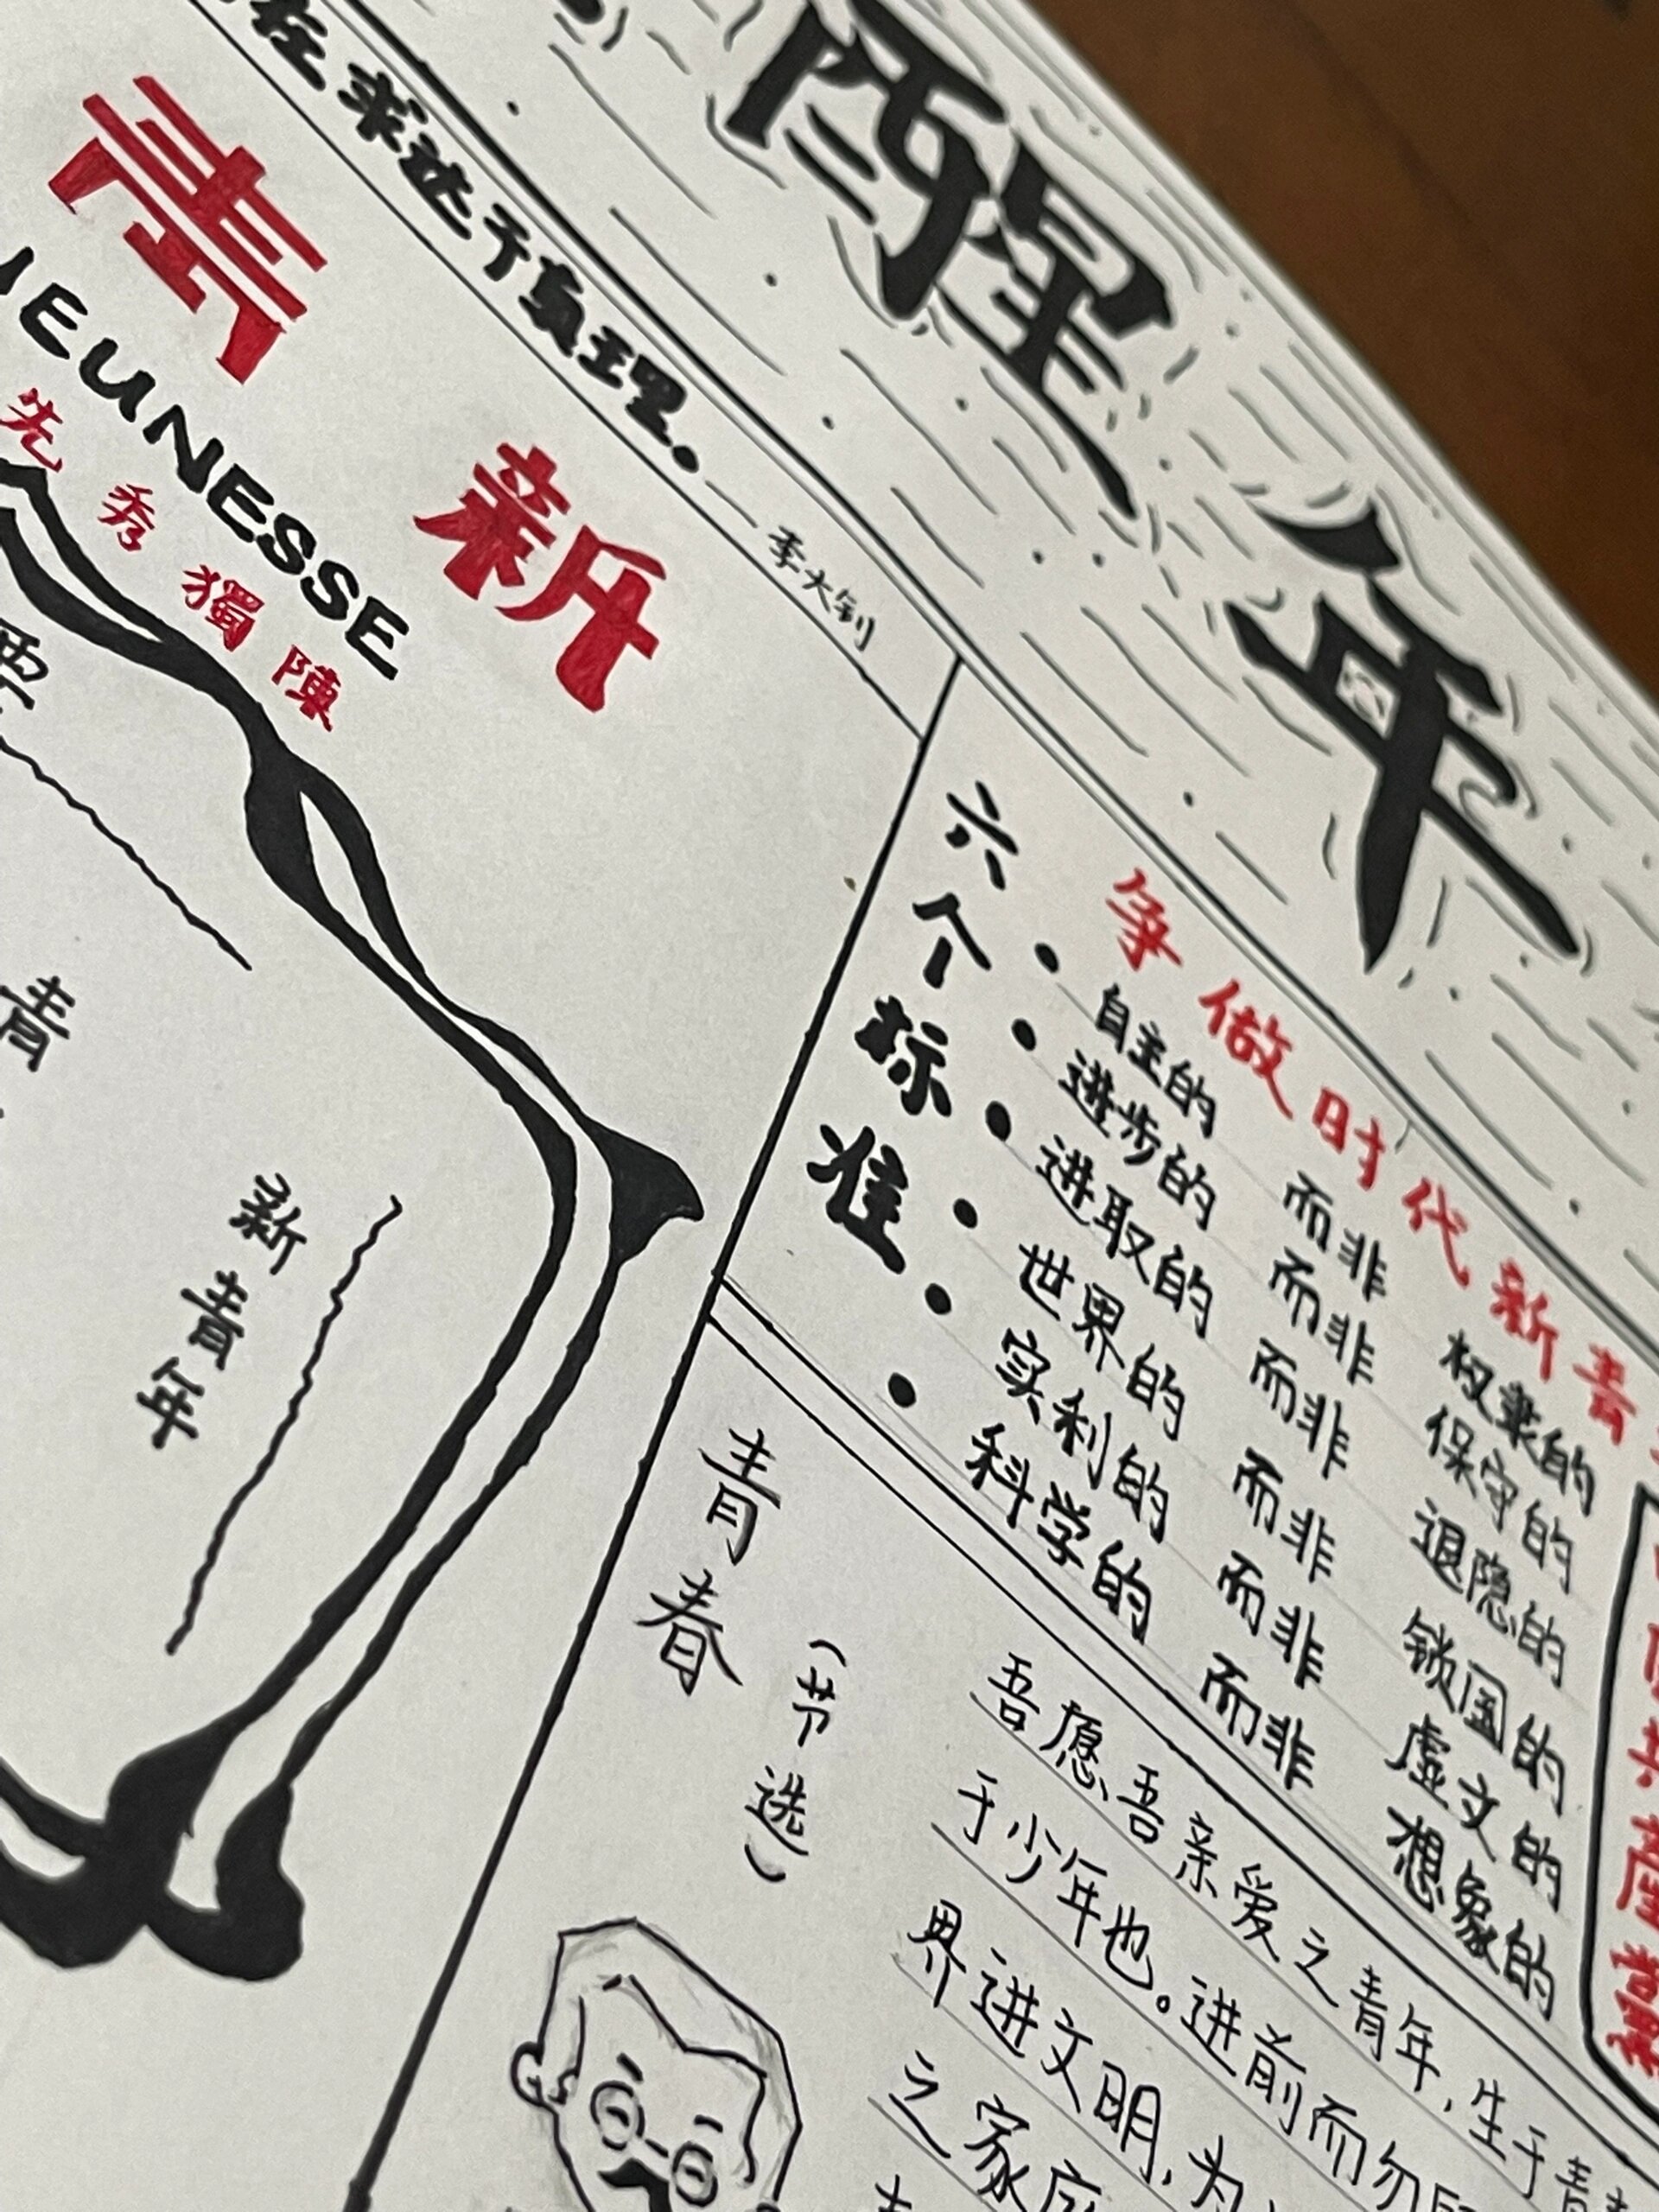 醒年
在求达于真理。——李大钊
青 新
JEUNESSE
先秀獨陳
青
新青年
六个标准
争做时代新青
• 自主的 而非 权隶的
• 进步的 而非 保守的
• 进取的 而非 退隐的
• 世界的 而非 锁国的
• 实利的 而非 虚文的
• 科学的 而非 想象的
共产党
青春
(节选)
吾愿吾亲爱之青年,生于青
于少年也。进前而勿
界进文明,为
之家庭